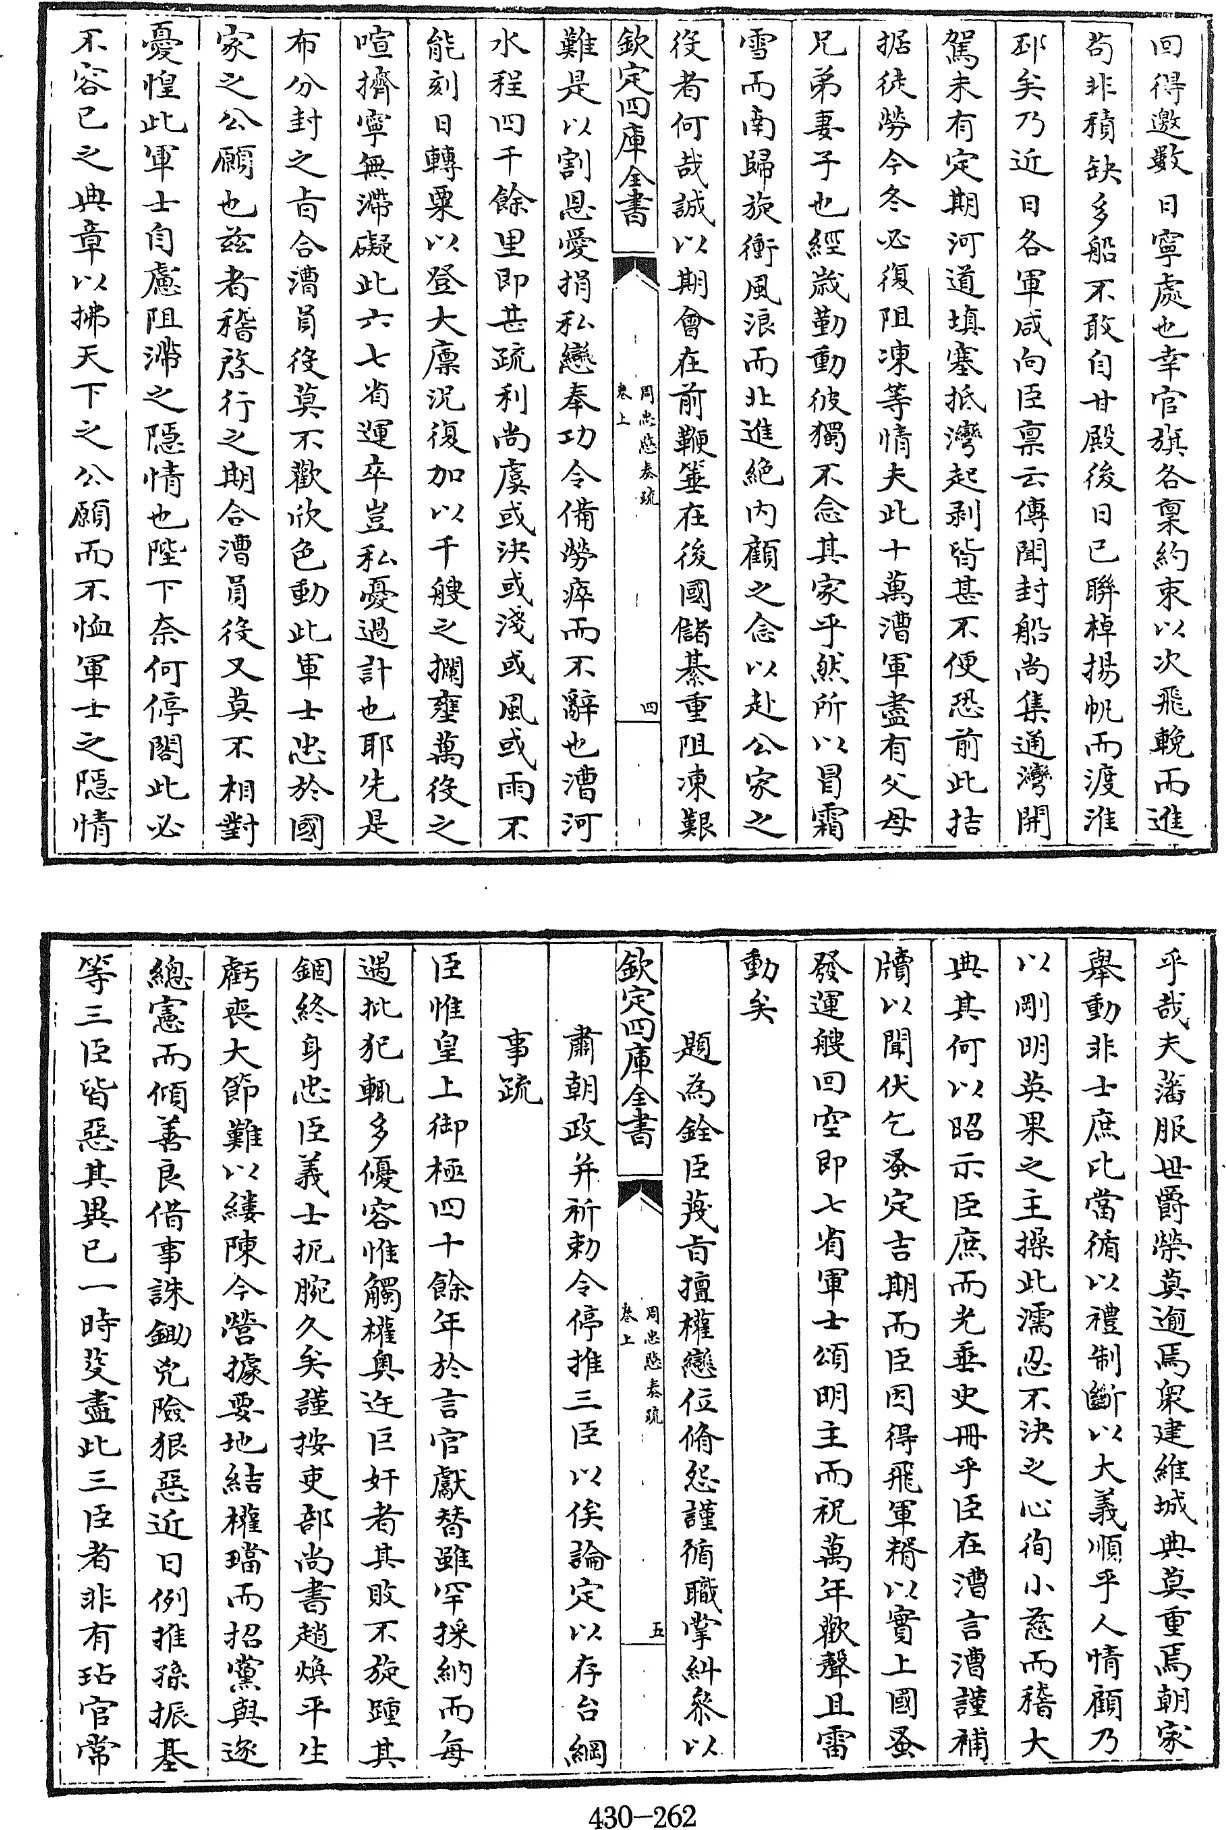 回得邀數日寧處也幸官旗各稟約束以次飛輓而進
苟非積缺多船不敢自甘殿後日已聯檣揚帆而渡淮
邳矣乃近日各軍咸向臣稟云傳聞封船尚集通灣開
駕未有定期河道填塞抵灣起剥皆甚不便恐前此拮
据徒勞今冬必復阻凍等情夫此十萬漕軍盡有父母
兄弟妻子也經嵗勤動彼獨不念其家乎然所以冒霜
雪而南歸旋衝風浪而北進絶内顧之念以赴公家之
役者何哉誠以期會在前鞭箠在後國儲綦重阻凍艱
欽定四庫全書
周忠愍奏疏
卷上
四
難是以割恩愛捐私戀奉功令備勞瘁而不辭也漕河
水程四千餘里即甚疏利尚虞或決或淺或風或雨不
能刻日轉粟以登大廩況復加以千艘之攔壅萬役之
喧擠寧無滯礙此六七省運卒豈私憂過計也耶先是
布分封之旨合漕員役莫不歡欣色動此軍士忠於國
家之公願也兹者稽啓行之期合漕員役又莫不相對
憂惶此軍士自慮阻滯之隱情也陛下奈何停閣此必
不容已之典章以拂天下之公願而不恤軍士之隱情
乎哉夫藩服世爵榮莫逾焉衆建維城典莫重焉朝家
舉動非士庶比當循以禮制斷以大義順乎人情顧乃
以剛明英果之主操此濡忍不決之心徇小慈而稽大
典其何以昭示臣庶而光垂史冊乎臣在漕言漕謹補
牘以聞伏乞蚤定吉期而臣因得飛軍糈以實上國蚤
發運艘回空即七省軍士頌明主而祝萬年歡聲且雷
動矣
題為銓臣蔑旨擅權戀位脩怨謹循職掌糾叅以
欽定四庫全書
周忠愍奏疏
卷上
五
肅朝政并祈勅令停推三臣以俟論定以存台綱
事疏
臣惟皇上御極四十餘年於言官獻替雖罕採納而每
遇批犯輒多優容惟觸權奥迕巨奸者其敗不旋踵其
錮終身忠臣義士扼腕久矣謹按吏部尚書趙煥平生
虧喪大節難以縷陳今營據要地結權璫而招黨與逐
總憲而傾善良借事誅鋤兇險狠惡近日例推孫振基
等三臣皆惡其異已一時芟盡此三臣者非有玷官常
430-262